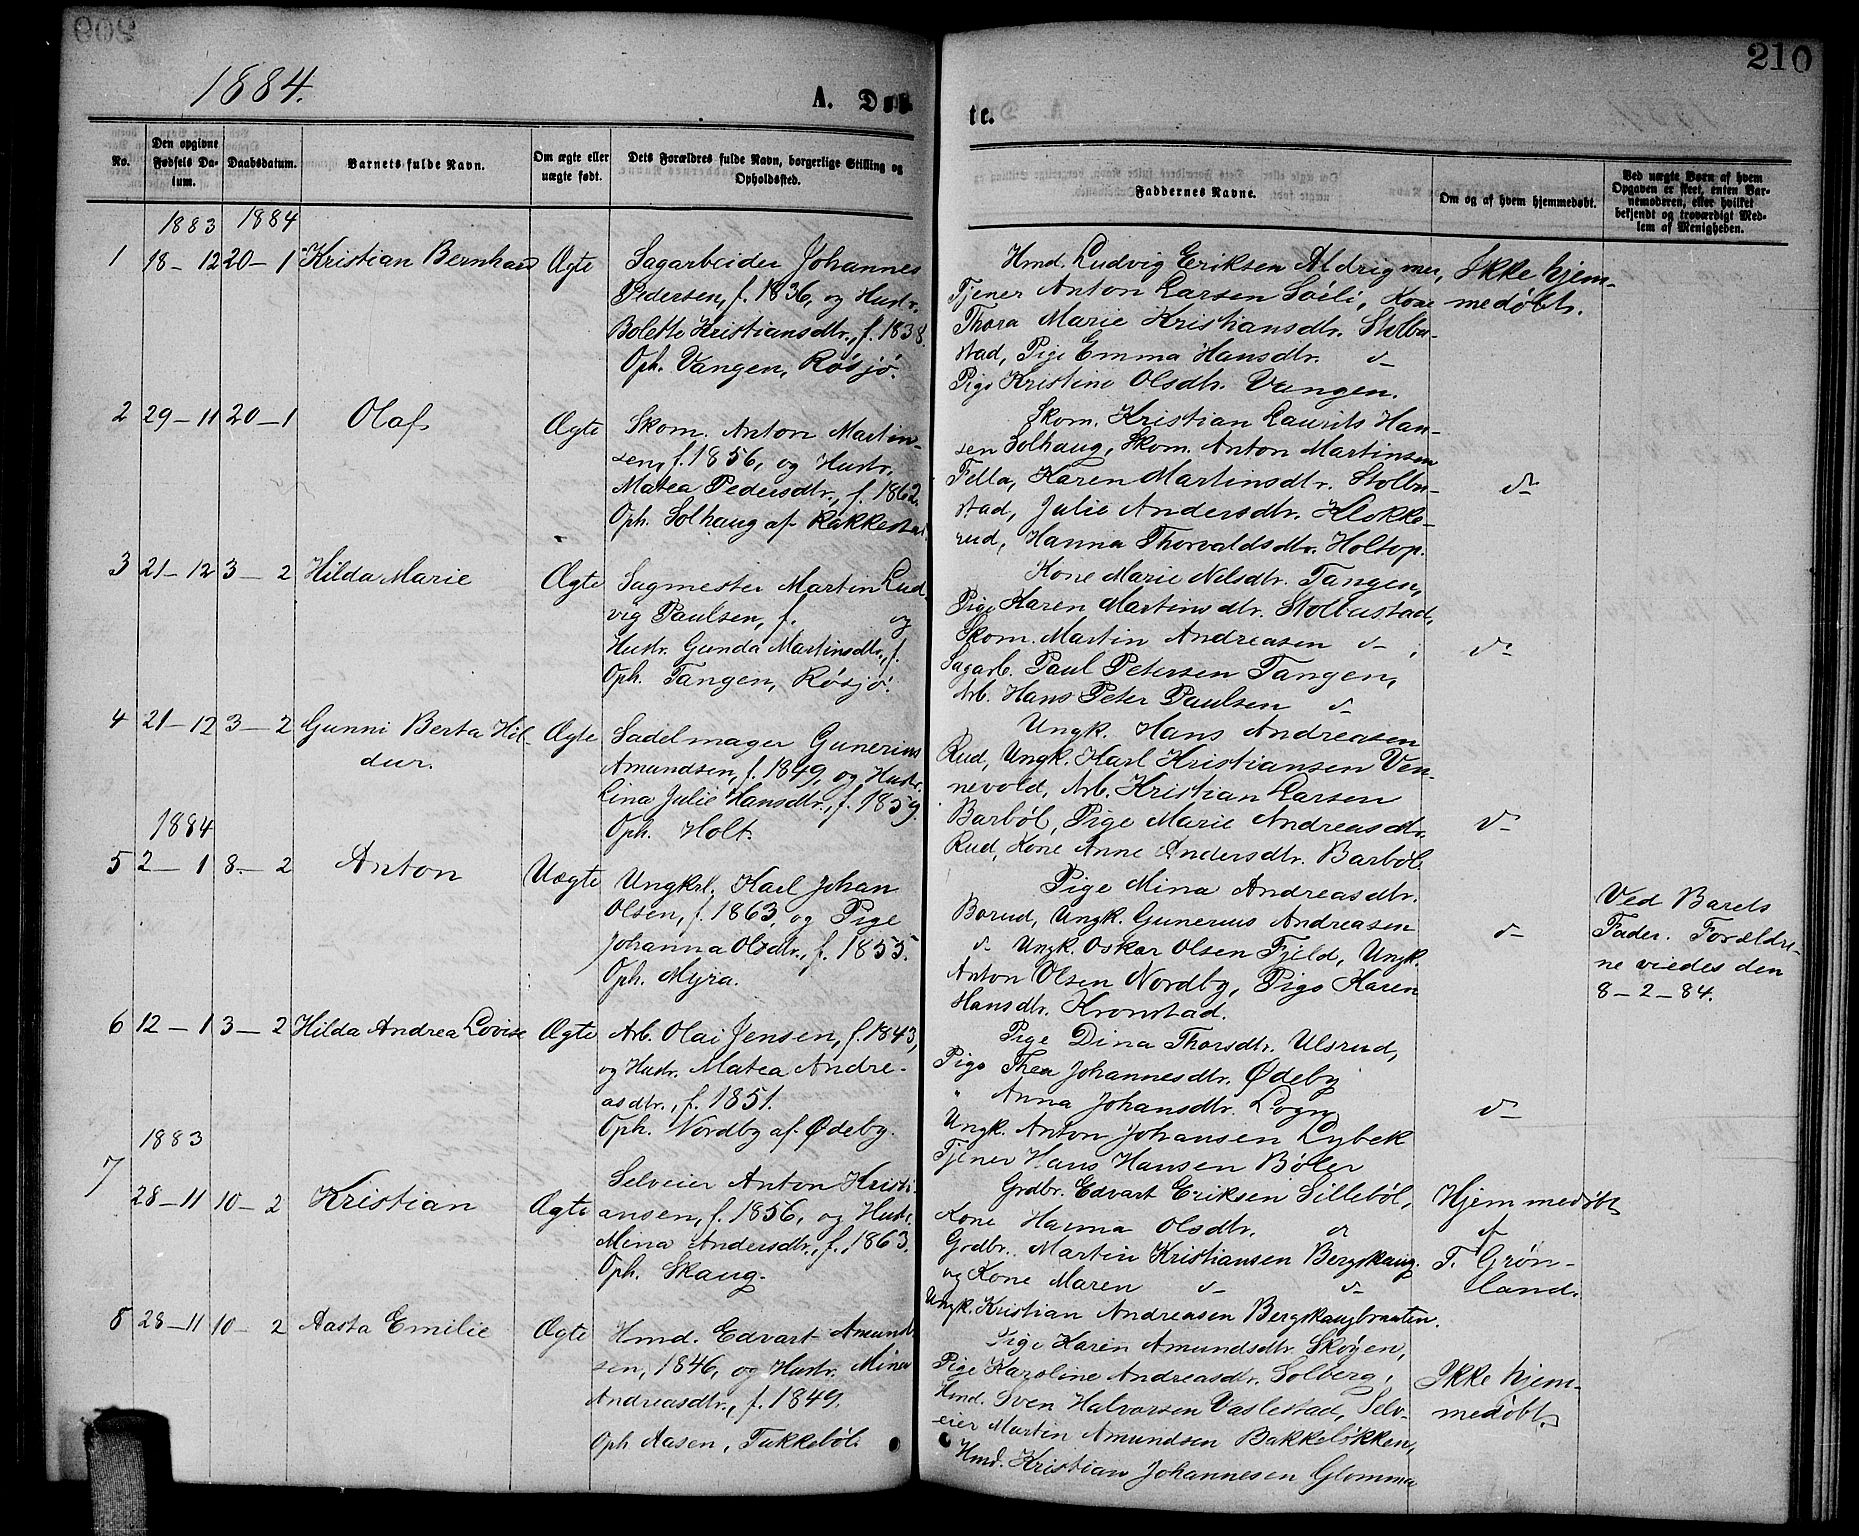 1884.
A. Døb
te.
210
No.
Den opgivne Fødsels Datum.
Daabsdatum.
Barnets fulde Navn.
Om ægte eller uægte født.
Dets Forældres fulde Navn, borgerlige Stilling og Opholdssted.
Faddernes Navne.
Om og af hvem hjemmedøbt.
Ved uægte Børn af hvem Opgaven er skeet, enten Barnemoderen, eller hvilket bekjendt og troværdigt Medlem af Menigheden.
1883 1884
1 18-12 20-1 Kristian Bernhard Ægte
Sagarbeider Johannes
Pedersen, f. 1836, og Hustr.
Bolette Kristiansdtr., f. 1838.
Oph. Vangen, Røsjø.
Hmd. Ludvig Eriksen Aldrigmer,
Tjener Anton Larsen Soéli, Kone
Thora Marie Kristiansdtr. Stolbu-
stad, Pige Emma Hansdtr. d-
Pige Kristine Olsdtr. Vangen.
Ikke hjem-
medøbt.
2 29-11 20-1 Olaf Ægte
Skom. Anton Martin-
sen, f. 1856, og Hustr.
Matea Pedersdtr., f. 1862.
Oph. Solhaug af Rakkestad.
Skom. Kristian Laurits Han-
sen Solhaug, Skom. Anton Martinsen
Fella, Karen Martinsdtr. Stolbu-
stad, Julie Andersdtr. Klokke-
rud, Hanna Thorvaldsdtr. Holtop.
d-
3 21-12 3-2 Hilda Marie Ægte
Sagmester Martin Lud-
vig Paulsen, f. og
Hustr. Gunda Martinsdtr., f.
Oph. Tangen, Røsjø.
Kone Marie Nilsdtr. Tangen,
Pige Karen Martinsdtr. Stolbustad,
Skom. Martin Andreasen d-,
Sagarb. Paul Petersen Tangen,
Arb. Hans Peter Paulsen d-
d-
4 21-12 3-2 Gunni Berta Hil-
dur. Ægte
Sadelmager Gunerius
Amundsen, f. 1849, og Hustr.
Lina Julie Hansdtr., f. 1859.
Oph. Holt.
Ungk. Hans Andreasen
Rud, Ungk. Karl Kristiansen Ven-
nevold, Arb. Kristian Larsen
Barbøl, Pige Marie Andreasdtr.
Rud, Kone Anne Andersdtr. Barbøl.
d-
1884
5 2-1 8-2 Anton Uægte
Ungkrl. Karl Johan
Olsen, f. 1863, og Pige
Johanna Olsdtr., f. 1855.
Oph. Myra.
Pige Mina Andreasdtr.
Borud, Ungk. Gunerius Andreasen
d- Ungk. Oskar Olsen Fjeld, Ungk.
Anton Olsen Nordby, Pige Karen
Hansdtr. Kronstad.
d-
Ved Barets
Fader. Forældre-
ne viedes den
8-2-84.
6 12-1 3-2 Hilda Andrea Lovise Ægte
Arb. Olai Jensen, f. 1843,
og Hustr. Matea Andre-
asdtr., f. 1851.
Oph. Nordby af Ødeby.
Pige Dina Thorsdtr. Ulsrud,
Pige Thea Johannesdtr. Ødeby
" Anna Johansdtr. Logn
Ungk. Anton Johansen Lybek
Tjener Hans Hansen Bøler
d-
1883
7 28-11 10-2 Kristian Ægte
Selveier Anton Kristi-
ansen, f. 1856, og Hustr.
Mina Andersdtr., f. 1863.
Oph. Skaug.
Grdbr. Edvart Eriksen Sillebøl,
Kone Hanna Olsdtr. d-
Grdbr. Martin Kristiansen Bergskaug.
og Kone Maren d- d-
Ungk. Kristian Andreasen Bergskaugbraaten.
Hjemmedøbt
af
T. Grøn-
land.
8 28-11 10-2 Aasta Emilie Ægte
Hmd. Edvart Amund-
sen, 1846, og Hustr. Mina
Andreasdtr., f. 1849.
Oph Aasen, Tukkebøl.
Pige Karen Amundsdtr. Skøyen,
Pige Karoline Andreasdtr. Solberg,
Hmd. Sven Halvorsen Vaslestad, Selv-
eier Martin Amundsen Bakkeløkken,
Hmd. Kristian Johannesen Glomma
Ikke hjem-
medøbt.